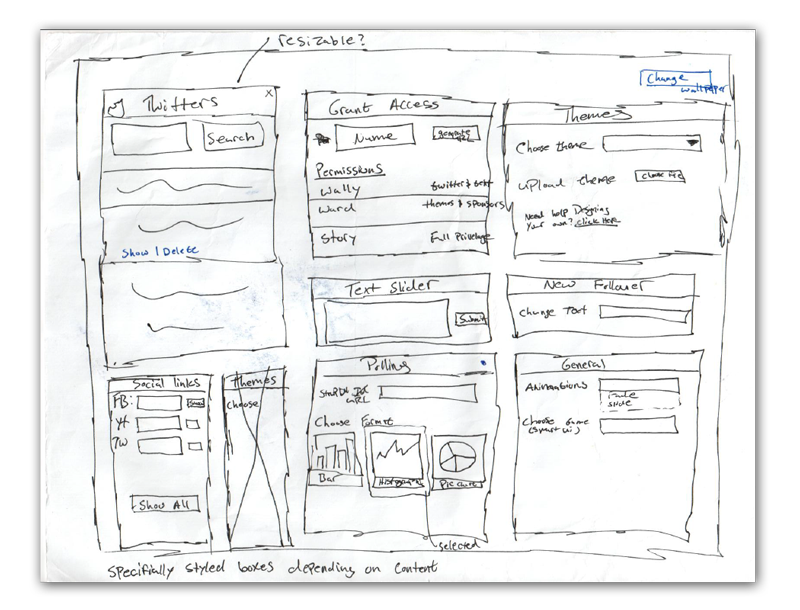 resizable?
Change
wallpaper
Twitters
x
Search
Show | Delete
Grant Access
Name
generate
URL
Permissions
Wally twitter & text
Ward themes & sponsors
Story Full Privelage
Themes
Choose theme
upload theme Choose File
Need help Designing
your own? Click Here
Text Slider
Submit
New Follower
Change Text
Social links
FB:
YT
TW
Show All
Themes
Choose
Polling
URL
Choose Format
Bar
Histogram
Pie chart
selected
General
Fade
Slide
Choose Game
Specifially styled boxes depending on Content